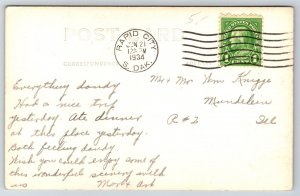 POSTCARD
CORRESPONDENCE
RAPID CITY
JUN 21
12 PM
1934
S. DAK.
Everything dandy
Had a nice trip
yesterday. Ate dinner
at this place yesterday.
Both feeling dandy.
Wish you could enjoy some of
this wonderful scenery with
us Mort &
Mr & Mrs Wm Knigge
Mundelein
R #2 Ill